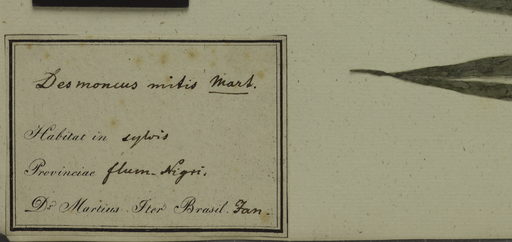 Desmoncus mitis Mart.
Habitat in sylvis
Provinciae flum. Nigri.
Dr. Martius. Iter Brasil. Jan.